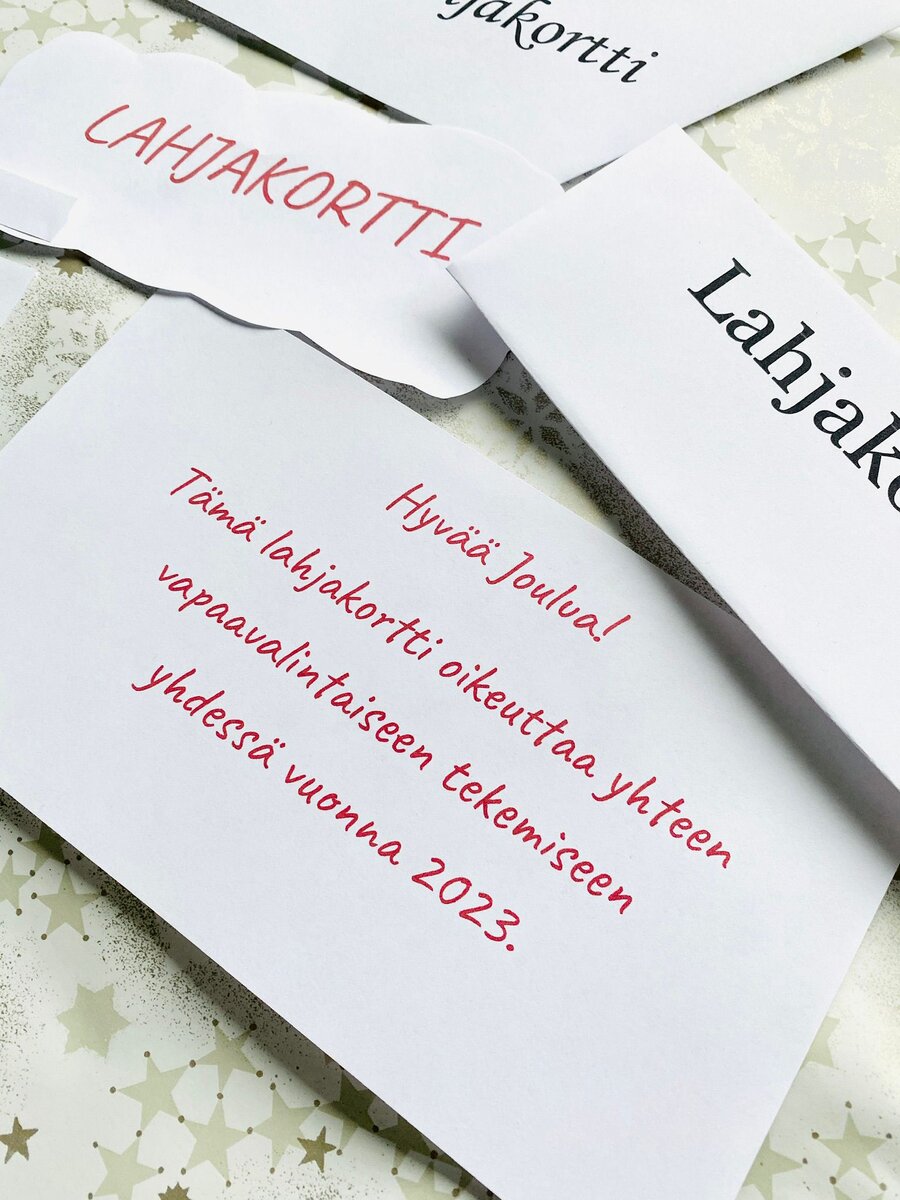 LAHJAKORTTI
Hyvää Joulua!
Tämä lahjakortti oikeuttaa yhteen
vapaavalintaiseen tekemiseen
yhdessä vuonna 2023.